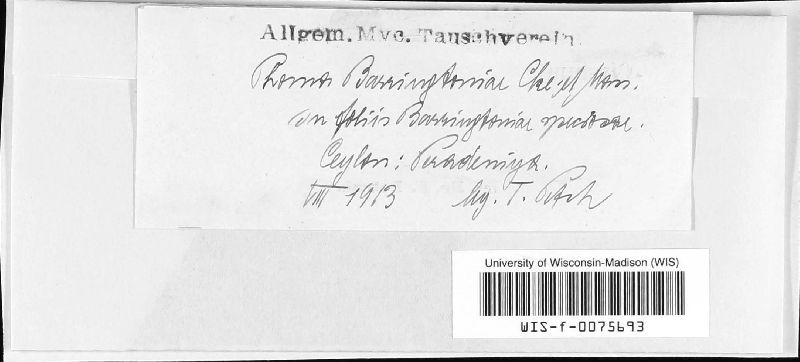 Allgem. Myc. Tauschverein.
Phoma Barringtoniae Cke et Mass.
on foliis Barringtoniae speciosae.
Ceylon: Peradeniya.
VIII 1913 lg. T. Petch
University of Wisconsin-Madison (WIS)
WIS-f-0075693